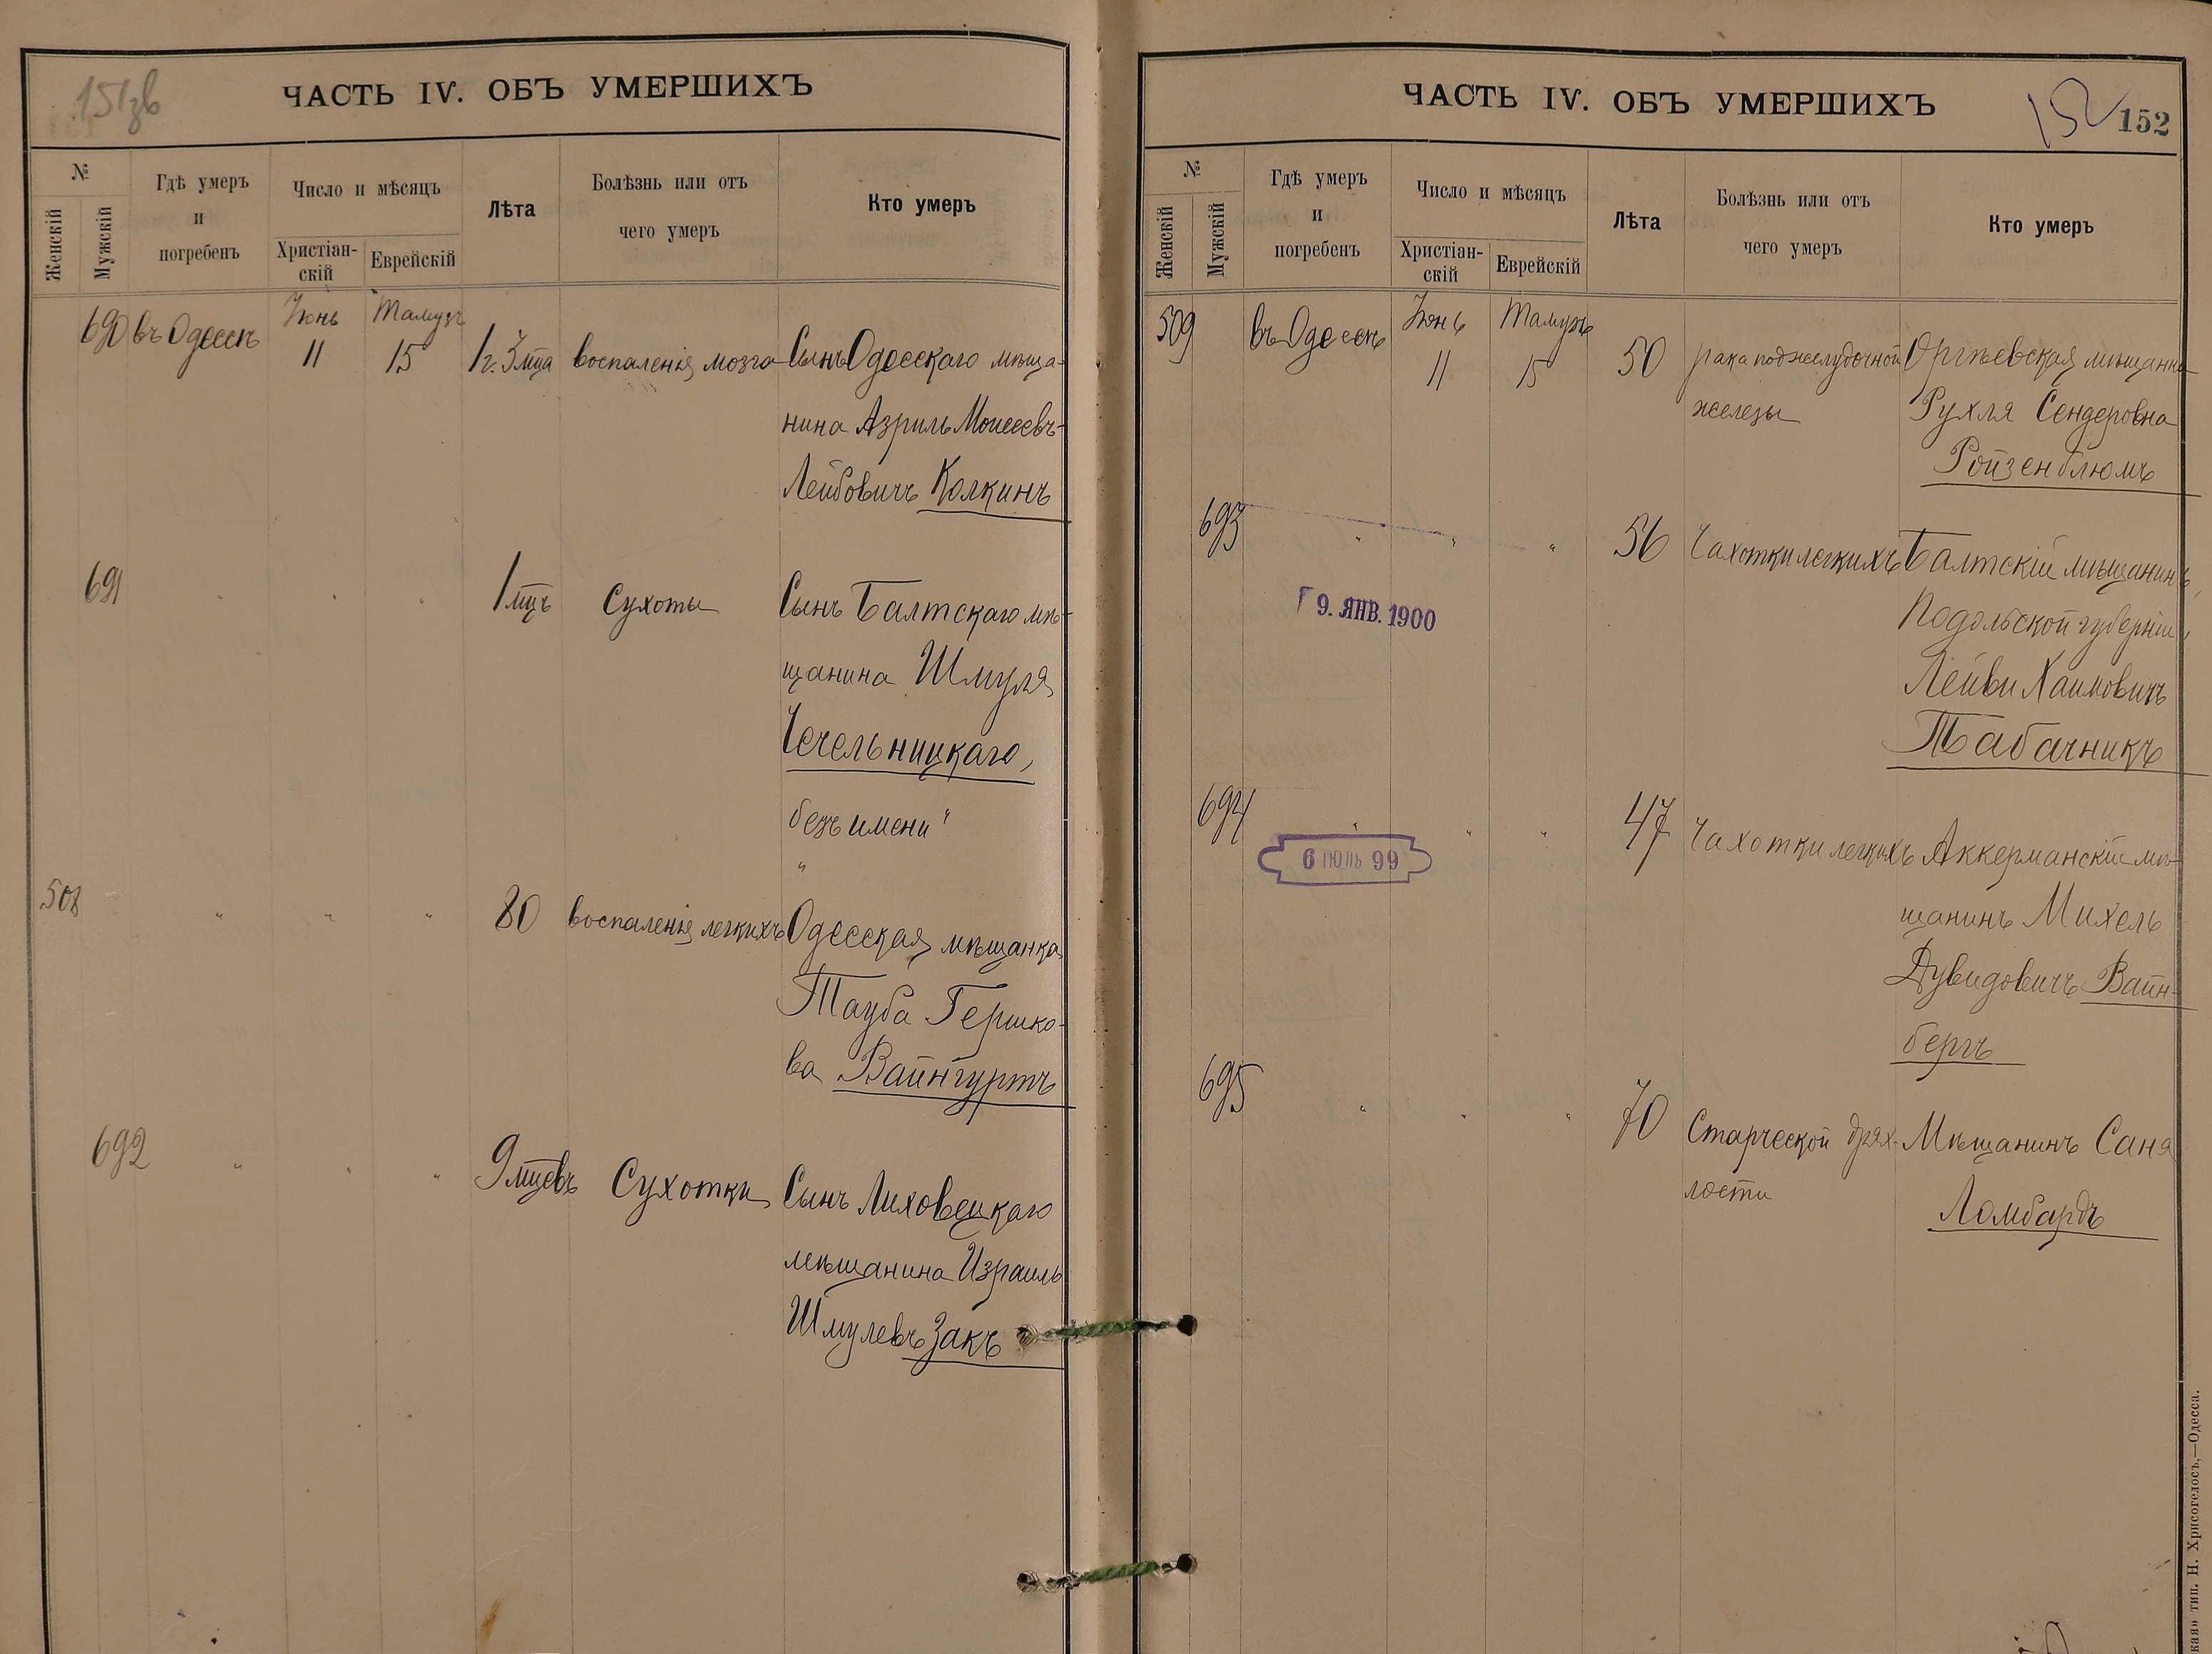 151зв
ЧАСТЬ IV. ОБЪ УМЕРШИХЪ
№
Женскій
Мужскій
Гдѣ умеръ
и
погребенъ
Число и мѣсяцъ
Христіан-
скій
Еврейскій
Лѣта
Болѣзнь или отъ
чего умеръ
Кто умеръ
Іюнь Тамузъ
690 въ Одессѣ 11 15 1г. 3 мца воспаленія мозга Сынъ Одесскаго мѣща-
нина Азриль Моисеевъ-
Лейбовичъ Колкинъ
691 " " " 1 мцъ Сухоты Сынъ Балтскаго мѣ-
щанина Шмуля
Чечельницкаго,
безъ имени "
"
508 " " " 80 воспаленія легкихъ Одесская мѣщанка
Тауба Гершко-
ва Вайнгуртъ
692 " " " 9 мцевъ Сухотки Сынъ Ляховецкаго
мѣщанина Израиль
Шмулевъ Закъ
ЧАСТЬ IV. ОБЪ УМЕРШИХЪ
152
152
№
Женскій
Мужскій
Гдѣ умеръ
и
погребенъ
Число и мѣсяцъ
Христіан-
скій
Еврейскій
Лѣта
Болѣзнь или отъ
чего умеръ
Кто умеръ
Іюнь Тамузъ
509 въ Одессѣ 11 15 50 рака поджелудочной Оргѣевская мѣщанка
железы Рухля Сендеровна
Ройзенблюмъ
693 " " " 56 Чахотки легкихъ Балтскій мѣщанинъ,
9. ЯНВ. 1900
Подольской губерніи,
Лейви Хаимовичъ
Табачникъ
694 " " " 47 Чахотки легкихъ Аккерманскій мѣ-
6 ІЮЛЬ 99
щанинъ Михель
Дувидовичъ Вайн-
бергъ
695 " " " 70 Старческой дрях- Мѣщанинъ Саня
лости Ломбардъ
тип. Н. Хрисогелосъ,—Одесса.